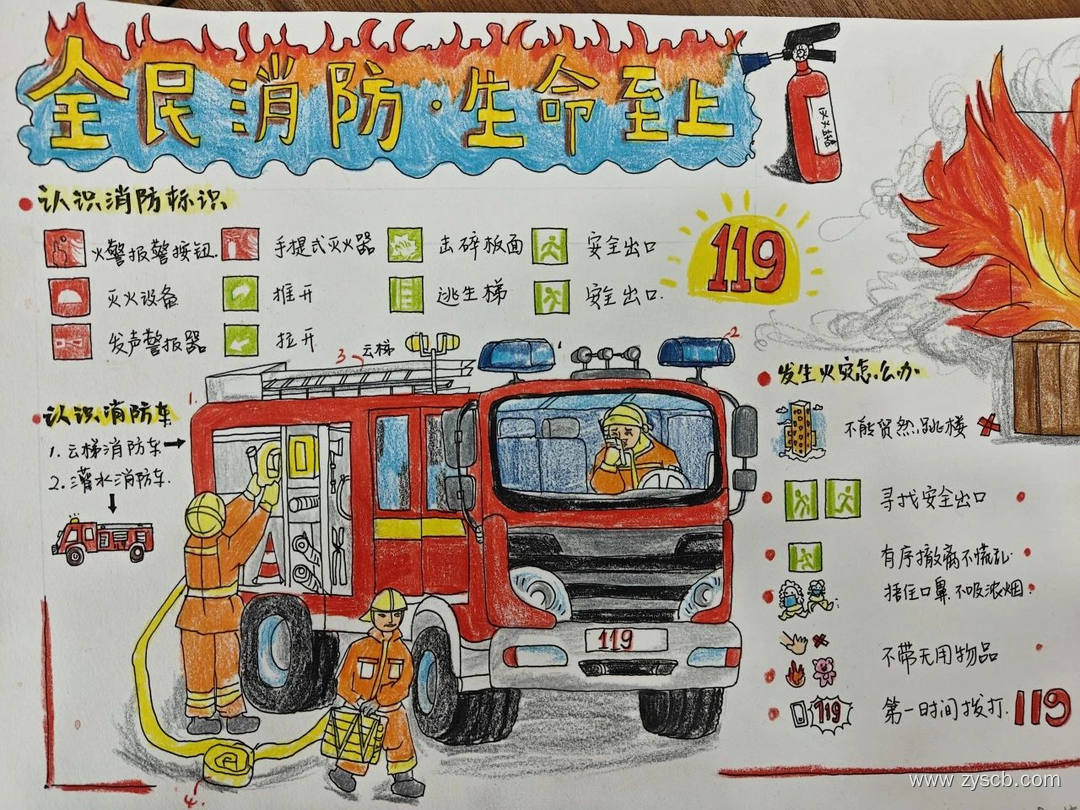 全民消防·生命至上
灭火器
认识消防标识
火警报警按钮 手提式灭火器 击碎板面 安全出口
灭火设备 推开 逃生梯 安全出口.
发声警报器 拉开
119
3 云梯
1
2
1.
认识消防车
1.云梯消防车→
2.灌水消防车.
119
4.
发生火灾怎么办
不能贸然跳楼
寻找安全出口
有序撤离不慌乱
捂住口鼻.不吸浓烟.
不带无用物品
119 第一时间拨打.119
www.zyscb.com